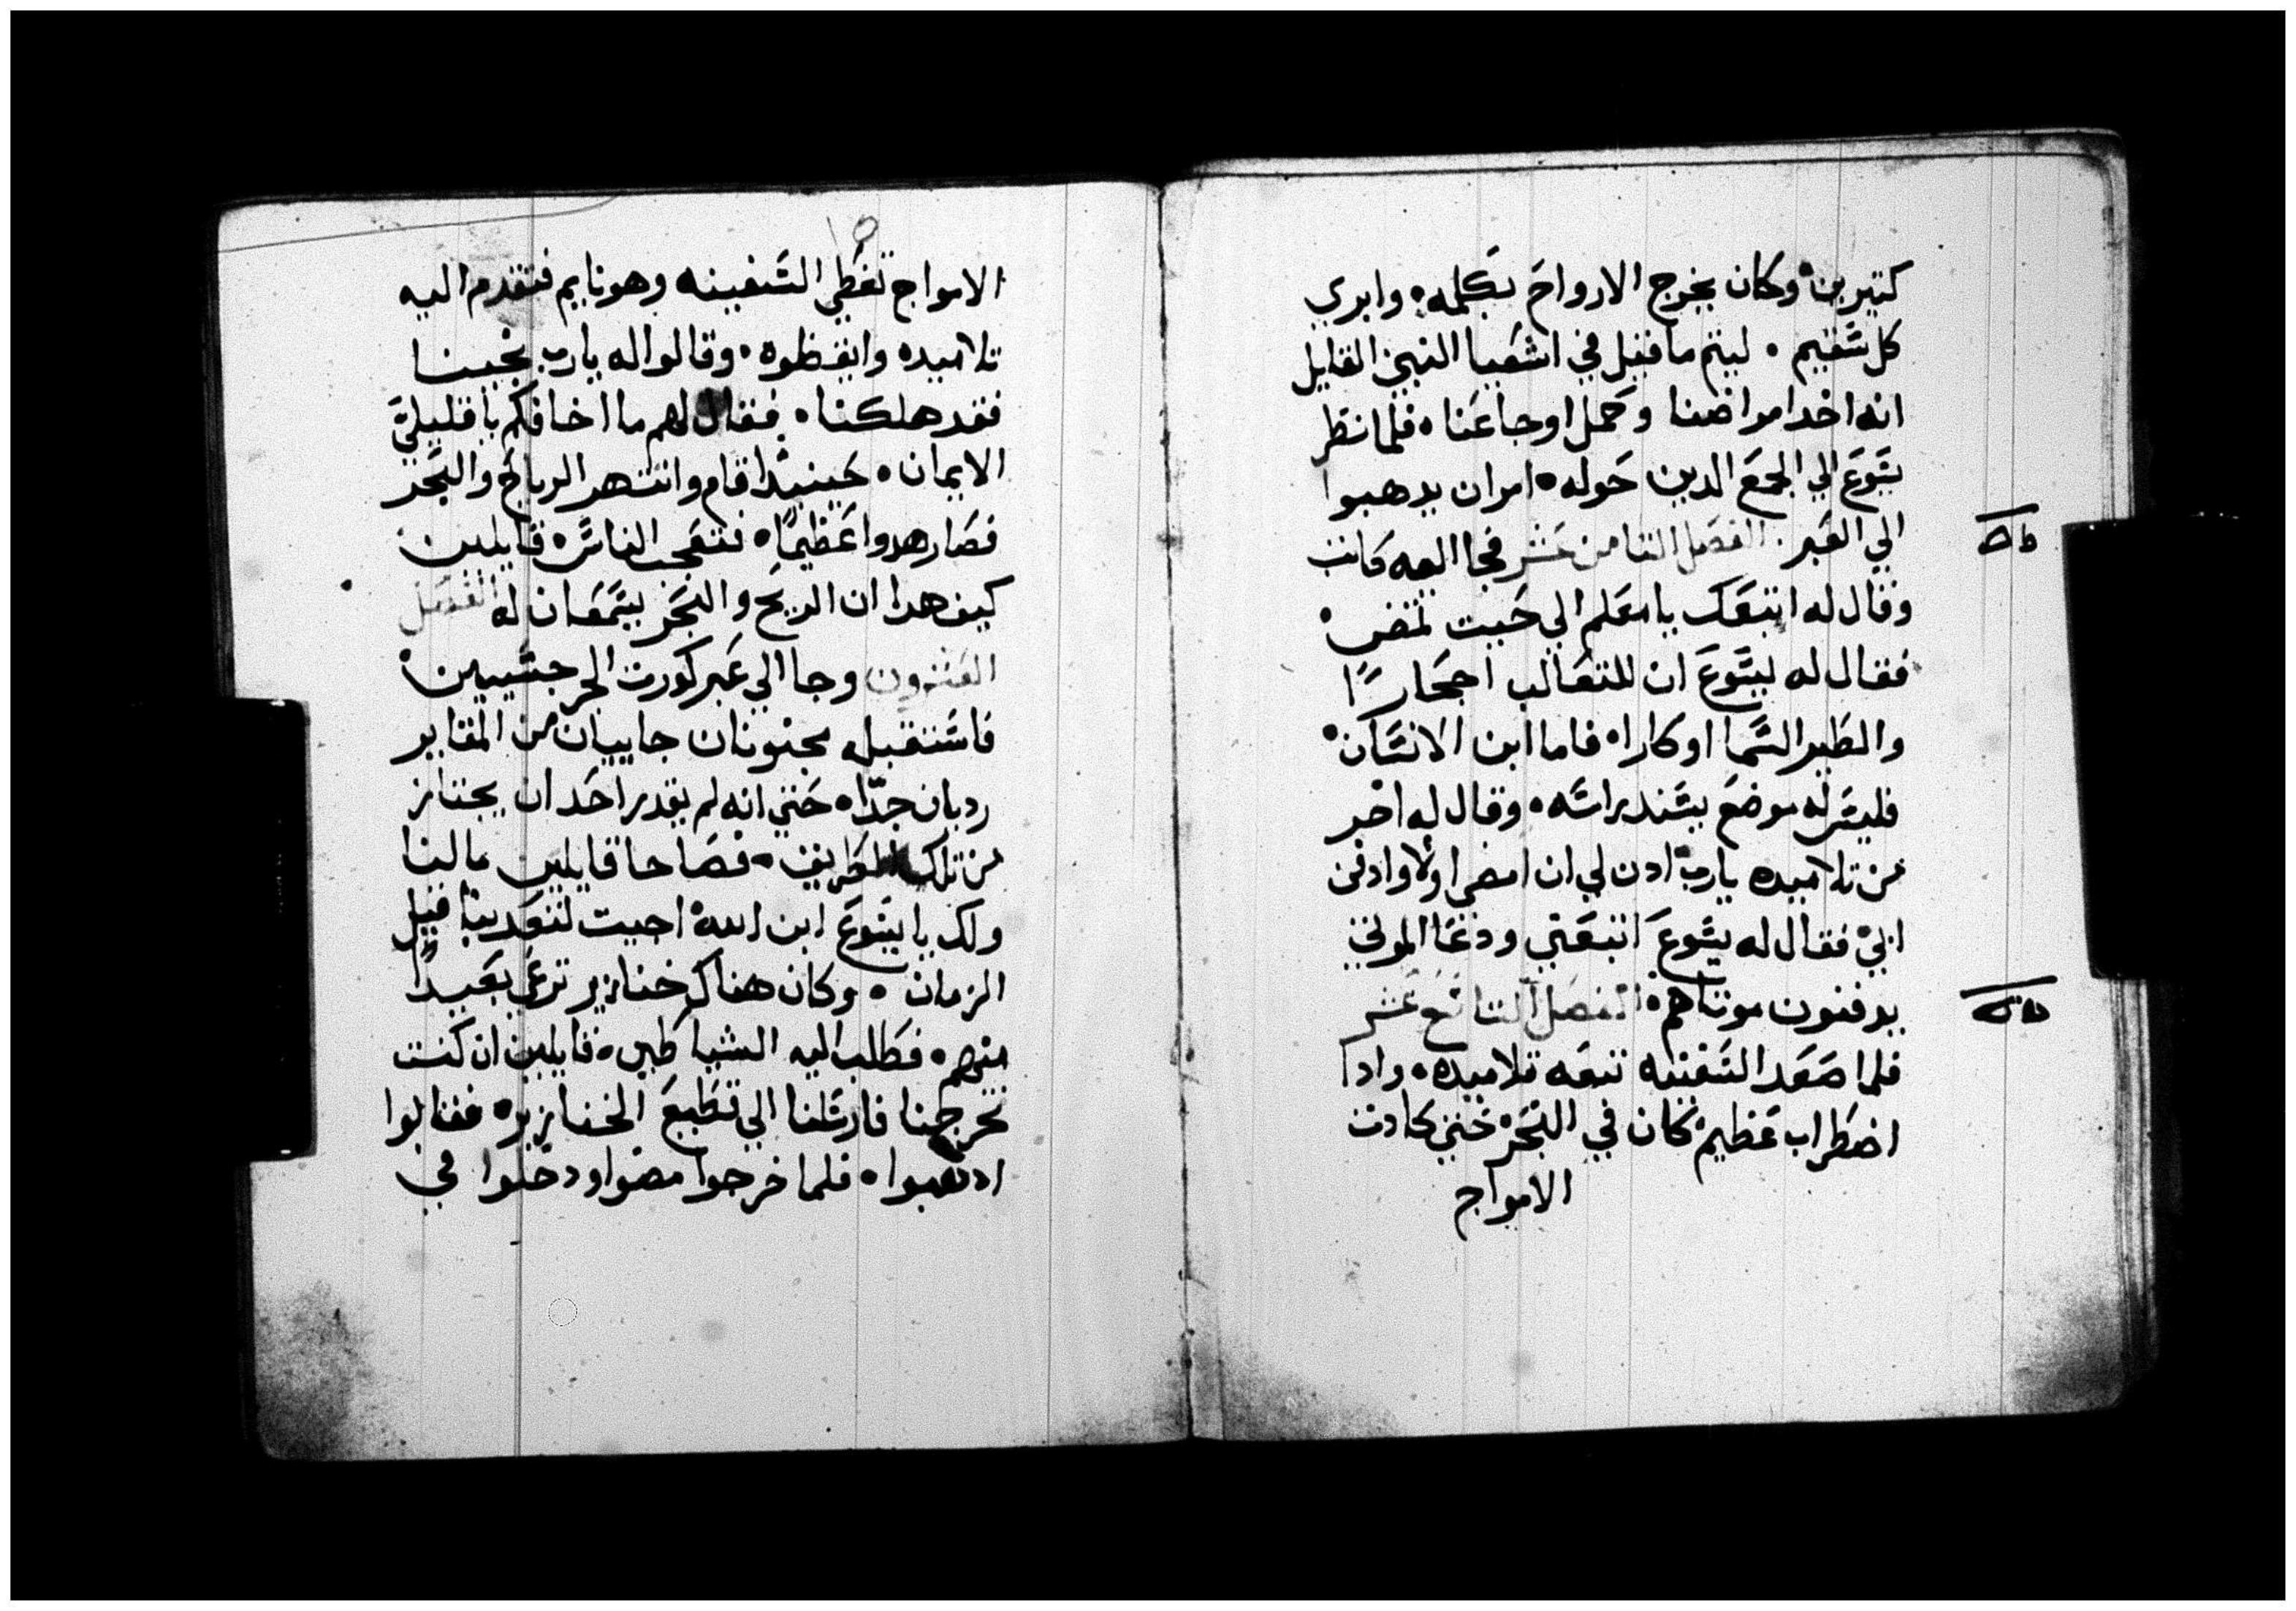 كتيرين وكان يخرج الارواح بكلمه وابري
كل سقيم ليتم ما قيل في اشعيا النبي القايل
انه اخد امراضنا وحمل اوجاعنا فلما نظر
يسوع الي الجمع الدين حوله امر ان يدهبوا
الي العبر الفصل التامن عشر فجا اليه كاتب
وقال له اتبعك يا معلم الي حيت تمضي
فقال له يسوع ان للتعالب احجارًا
والطير السما اوكارا فاما ابن الانسان
فليس له موضع يسند راسه وقال له اخر
من تلاميده يارب ادن لي ان امضي اولا وادفن
ابي فقال له يسوع اتبعني ودع الموتي
يدفنون موتاهم الفصل التاسع عشر
فلما صعد السفينه تبعه تلاميده وادا
اضطراب عظيم كان في البحر حتي كادت
الامواج
١٥
الامواج تغطي السفينه وهو نايم فتقدم اليه
تلاميده وايقظوه وقالوا له يارب نجينا
فقد هلكنا فقال لهم ما اخافكم يا قليلي
الايمان حينيدا قام وانتهر الرياح والبحر
فصار هدوا عظيمًا فتعجب الناس قايلين
كيف هدا ان الريح والبحر يسمعان له الفصل
العشرون وجا الي عبر كورت الجرجسيين
فاستقبله مجنونان جاييان من المقابر
رديان جدًا حتي انه لم يقدر احد ان يجتاز
من تلك الطريق فصاحا قايلين ما لنا
ولك يا يسوع ابن الله اجيت لتعدبنا قبل
الزمان وكان هناك خنازير ترعي بعيدًا
منهم فطلب اليه الشياطين قايلين ان كنت
تخرجنا فارسلنا الي قطيع الخنازير فقال لهم
ادهبوا فلما خرجوا مضوا ودخلوا في